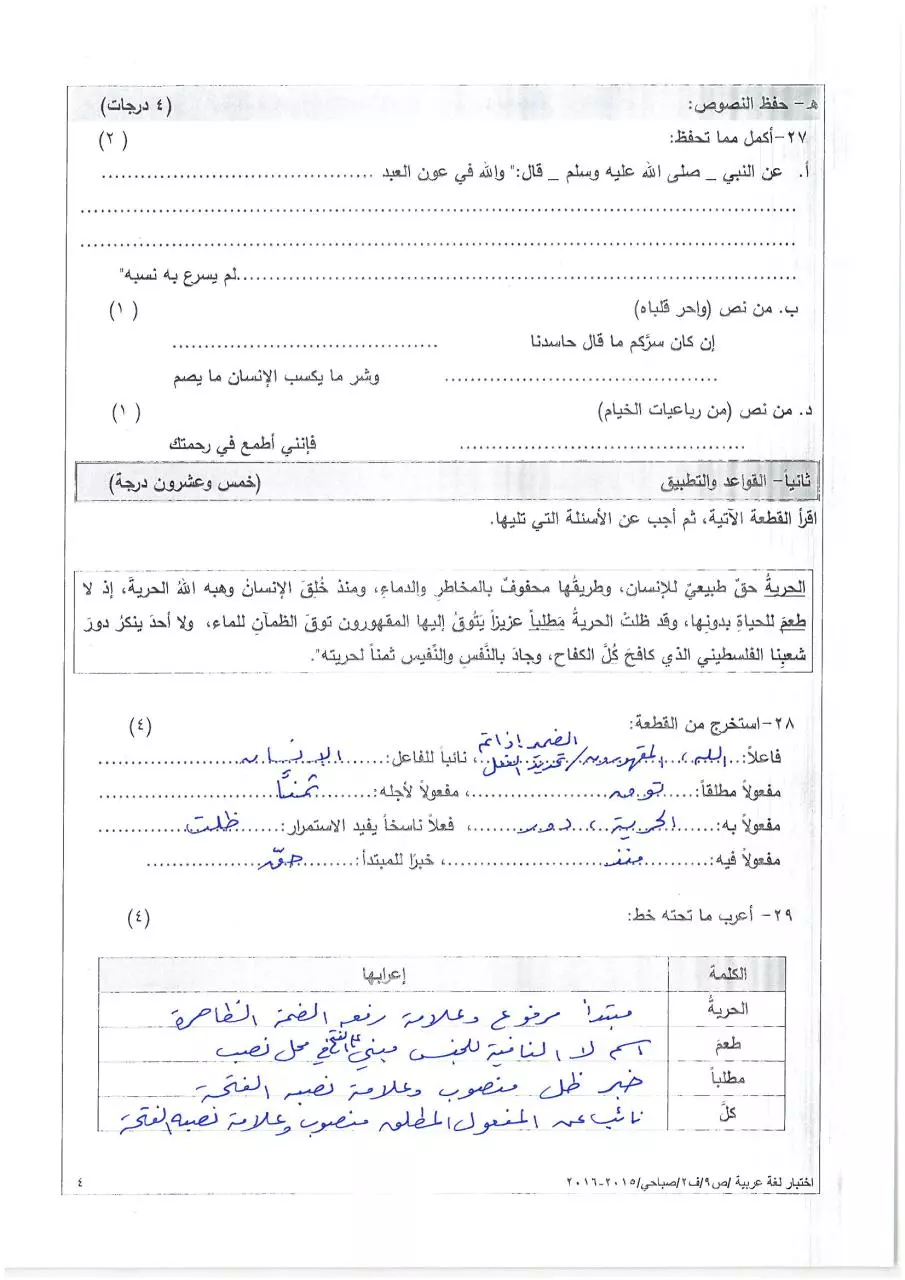 هـ- حفظ النصوص: (٤ درجات)
٢٧-أكمل مما تحفظ: (٢)
أ. عن النبي _ صلى الله عليه وسلم _ قال:" والله في عون العبد ..........................................
..........................................................................................
..........................................................................................
..........................................................................................لم يسرع به نسبه"
ب. من نص (واحر قلباه) (١)
إن كان سرّكم ما قال حاسدنا ..........................................
.......................................... وشر ما يكسب الإنسان ما يصم
د. من نص (من رباعيات الخيام) (١)
.......................................... فإنني أطمع في رحمتك
ثانياً- القواعد والتطبيق (خمس وعشرون درجة)
اقرأ القطعة الآتية، ثم أجب عن الأسئلة التي تليها.
الحريةُ حقٌ طبيعيٌ للإنسان، وطريقُها محفوفٌ بالمخاطرِ والدماءِ، ومنذ خُلقَ الإنسانُ وهبه اللهُ الحريةَ، إذ لا
طعمَ للحياةِ بدونِها، وقد ظلتْ الحريةُ مَطلباً عزيزاً يَتُوقُ إليها المقهورون توقَ الظمآنِ للماء، ولا أحدَ ينكرُ دورَ
شعبِنا الفلسطيني الذي كافحَ كُلَّ الكفاح، وجادَ بالنَّفسِ والنَّفيس ثمناً لحريته".
٢٨-استخرج من القطعة: (٤)
الضمير إذا تم
فاعلاً:....الله، المقهورون/ تحديد الفعل نائباً للفاعل:......الإنسان
مفعولاً مطلقاً:......توق......، مفعولاً لأجله:......ثمناً......
مفعولاً به:......الحرية، دور......، فعلاً ناسخاً يفيد الاستمرار:......ظلت......
مفعولاً فيه:......منذ......، خبرًا للمبتدأ:......حق......
٢٩- أعرب ما تحته خط: (٤)
الكلمة إعرابها
الحريةُ مبتدأ مرفوع وعلامة رفعه الضمة الظاهرة
طعمَ اسم لا النافية للجنس مبني على الفتح في محل نصب
مطلباً خبر ظل منصوب وعلامة نصبه الفتحة
كلَّ نائب عن المفعول المطلق منصوب وعلامة نصبه الفتحة
اختبار لغة عربية /ص٩/ف٢/صباحي/٢٠١٥-٢٠١٦ ٤